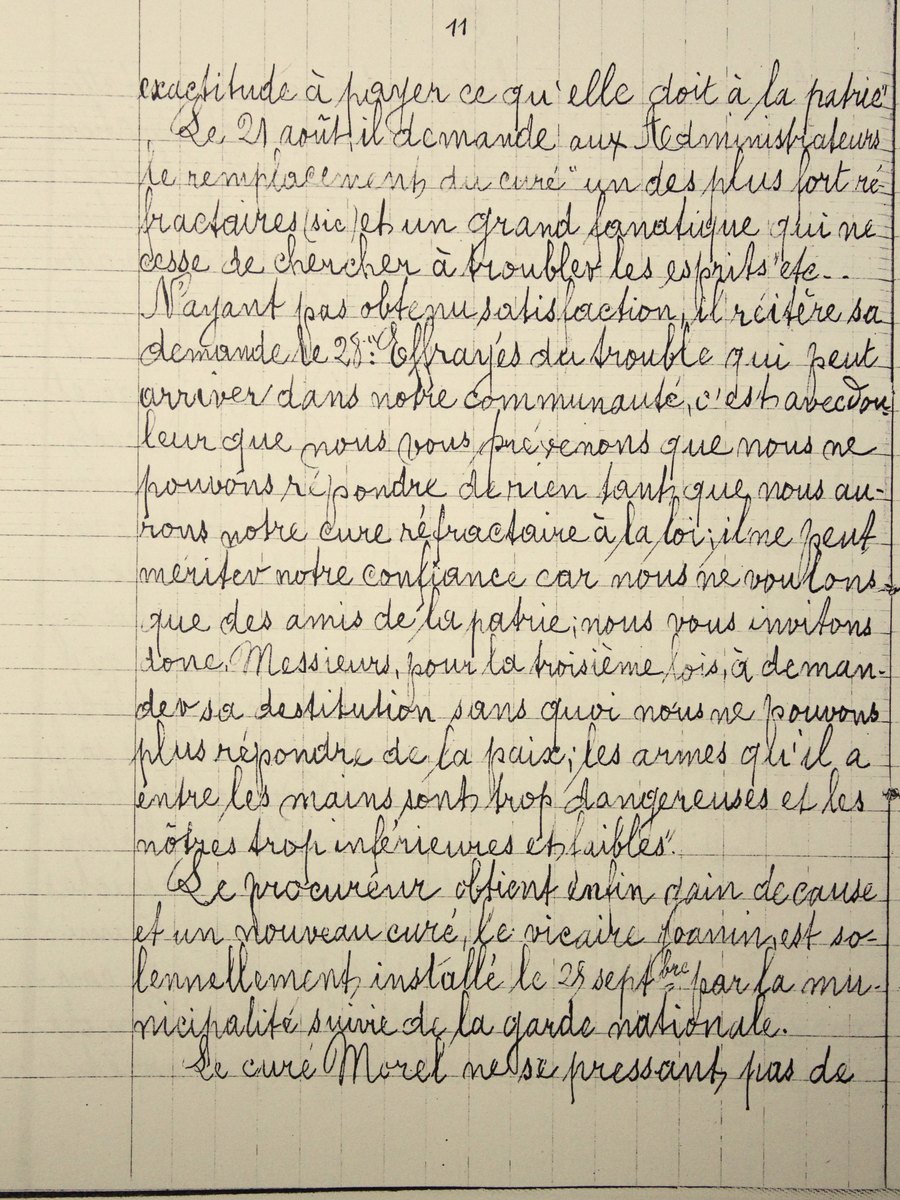 11
exactitude à payer ce qu'elle doit à la patrie"
Le 21 août, il demande aux Administrateurs
le remplacement du curé "un des plus fort ré-
fractaires (sic) et un grand fanatique qui ne
cesse de chercher à troubler les esprits" etc..
N'ayant pas obtenu satisfaction, il réitère sa
demande le 28: "Effrayés du trouble qui peut
arriver dans notre communauté, c'est avec dou-
leur que nous vous prévenons que nous ne
pouvons répondre de rien tant que nous au-
rons notre cure réfractaire à la loi; il ne peut
mériter notre confiance car nous ne voulons
que des amis de la patrie; nous vous invitons
donc, Messieurs, pour la troisième fois, à deman-
der sa destitution sans quoi nous ne pouvons
plus répondre de la paix; les armes qu'il a
entre les mains sont trop dangereuses et les
nôtres trop inférieures et faibles".
Le procureur obtient enfin gain de cause
et un nouveau curé, le vicaire Joanin, est so-
lennellement installé le 25 septbre par la mu-
nicipalité suivie de la garde nationale.
Le curé Morel ne se pressant pas de